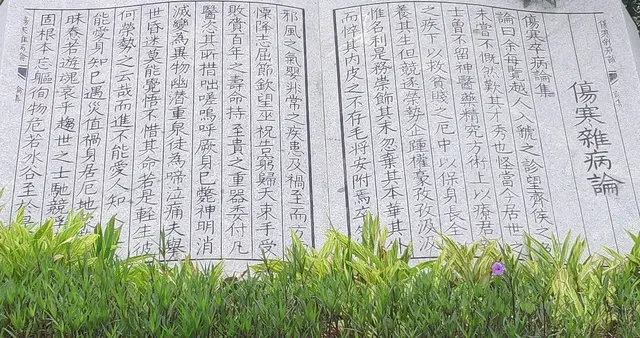 傷寒雜病論
傷寒卒病論集
論曰余每覽越人入虢之診望齊侯之
未嘗不慨然歎其才秀也怪當今居世之
士曾不留神醫藥精究方術上以療君
之疾下以救貧賤之厄中以保身長全
養其生但競逐榮勢企踵權豪孜孜汲汲
惟名利是務崇飾其末忽棄其本華其
而悴其內皮之不存毛將安附焉卒
邪風之氣嬰非常之疾患及禍至而方
慄降志屈節欽望巫祝告窮歸天束手受
敗賫百年之壽命持至貴之重器委付凡
醫恣其所措咄嗟嗚呼厥身已斃神明消
滅變為異物幽潛重泉徒為啼泣痛夫舉
世昏迷莫能覺悟不惜其命若是輕生彼
何榮勢之云哉而進不能愛人知
能愛身知己遇災值禍身居厄地
昧蠢若遊魂哀乎趨世之士馳競
固根本忘軀徇物危若冰谷至於